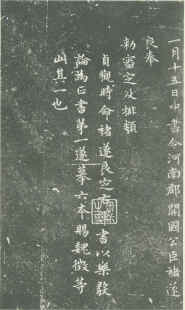 一月十五日中書令河南郡開國公臣褚遂
良奉
勑審定及排類
貞觀時命褚遂良定右軍書以樂毅
論為正書第一遂摹六本賜魏徵等
此其一也